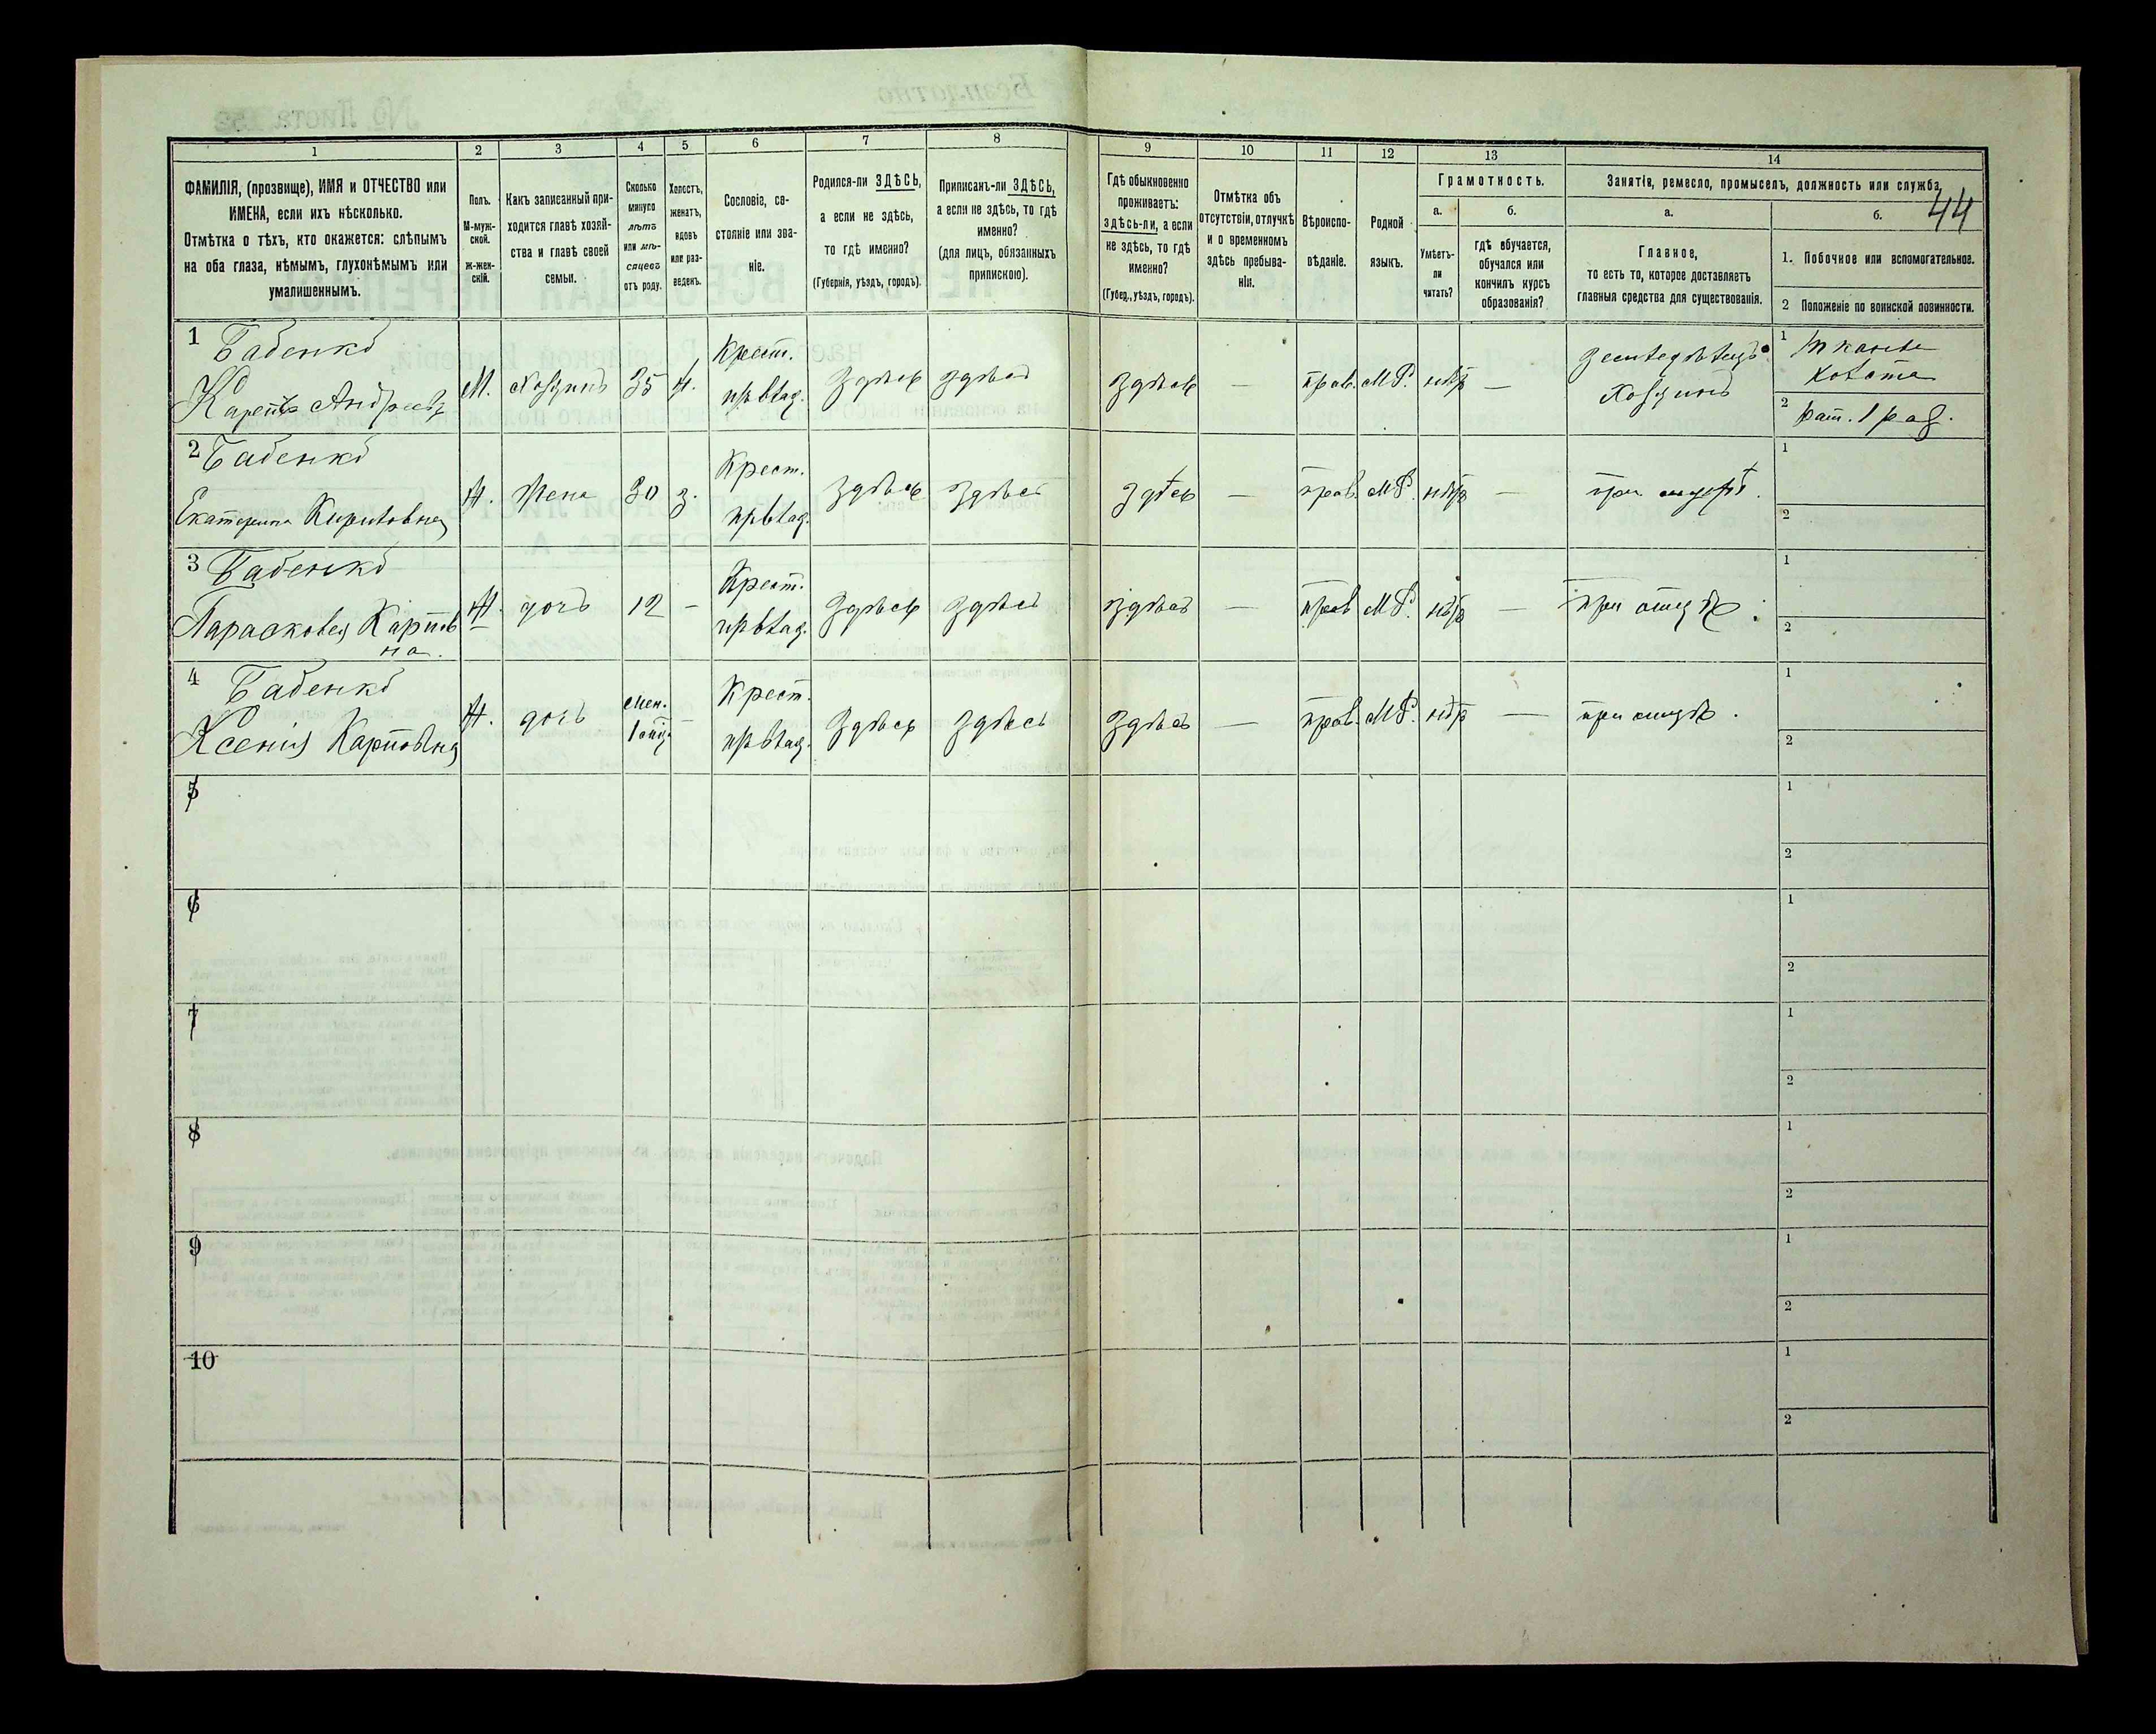 44
1 2 3 4 5 6 7 8 9 10 11 12 13 14
ФАМИЛІЯ, (прозвище), ИМЯ и ОТЧЕСТВО или
ИМЕНА, если ихъ нѣсколько.
Отмѣтка о тѣхъ, кто окажется: слѣпымъ
на оба глаза, нѣмымъ, глухонѣмымъ или
умалишеннымъ.
Полъ.
М-муж-
ской.
ж-жен-
скій.
Какъ записанный при-
ходится главѣ хозяй-
ства и главѣ своей
семьи.
Сколько
минуло
лѣтъ
или мѣ-
сяцевъ
отъ роду.
Холостъ,
женатъ,
вдовъ
или раз-
веденъ.
Сословіе, со-
стояніе или зва-
ніе.
Родился-ли ЗДѢСЬ,
а если не здѣсь,
то гдѣ именно?
(Губернія, уѣздъ, городъ).
Приписанъ-ли ЗДѢСЬ,
а если не здѣсь, то гдѣ
именно?
(для лицъ, обязанныхъ
припискою).
Гдѣ обыкновенно
проживаетъ:
здѣсь-ли, а если
не здѣсь, то гдѣ
именно?
(Губер., уѣздъ, городъ).
Отмѣтка объ
отсутствіи, отлучкѣ
и о временномъ
здѣсь пребыва-
ніи.
Вѣроиспо-
вѣданіе.
Родной
языкъ.
Грамотность.
а.
Умѣетъ-
ли
читать?
б.
гдѣ обучается,
обучался или
кончилъ курсъ
образованія?
Занятіе, ремесло, промыселъ, должность или служба.
а.
Главное,
то есть то, которое доставляетъ
главныя средства для существованія.
б.
1. Побочное или вспомогательное.
2 Положеніе по воинской повинности.
1 Бабенко
Карпъ Андреевъ
М. хозяинъ 35 ж. Крест. здѣсь здѣсь здѣсь — прав. М.Р. нѣтъ —
Хозяинъ
1
2 рат. 1 раз.
2 Бабенко
Екатерина Кириловна
Ж. жена 30 з. Крест. здѣсь здѣсь здѣсь — прав. М.Р. нѣтъ — при мужѣ.
1
2
3 Бабенко
Парасковея Карпов
на.
Ж. дочь 12 — Крест. здѣсь здѣсь здѣсь — прав М.Р. нѣтъ — при отцѣ
1
2
4 Бабенко
Ксенія Карповна
Ж. дочь мен.
1 — Крест. здѣсь здѣсь здѣсь — прав. М.Р. нѣтъ — при отцѣ.
1
2
5
1
2
6
1
2
7
1
2
8
1
2
9
1
2
10
1
2